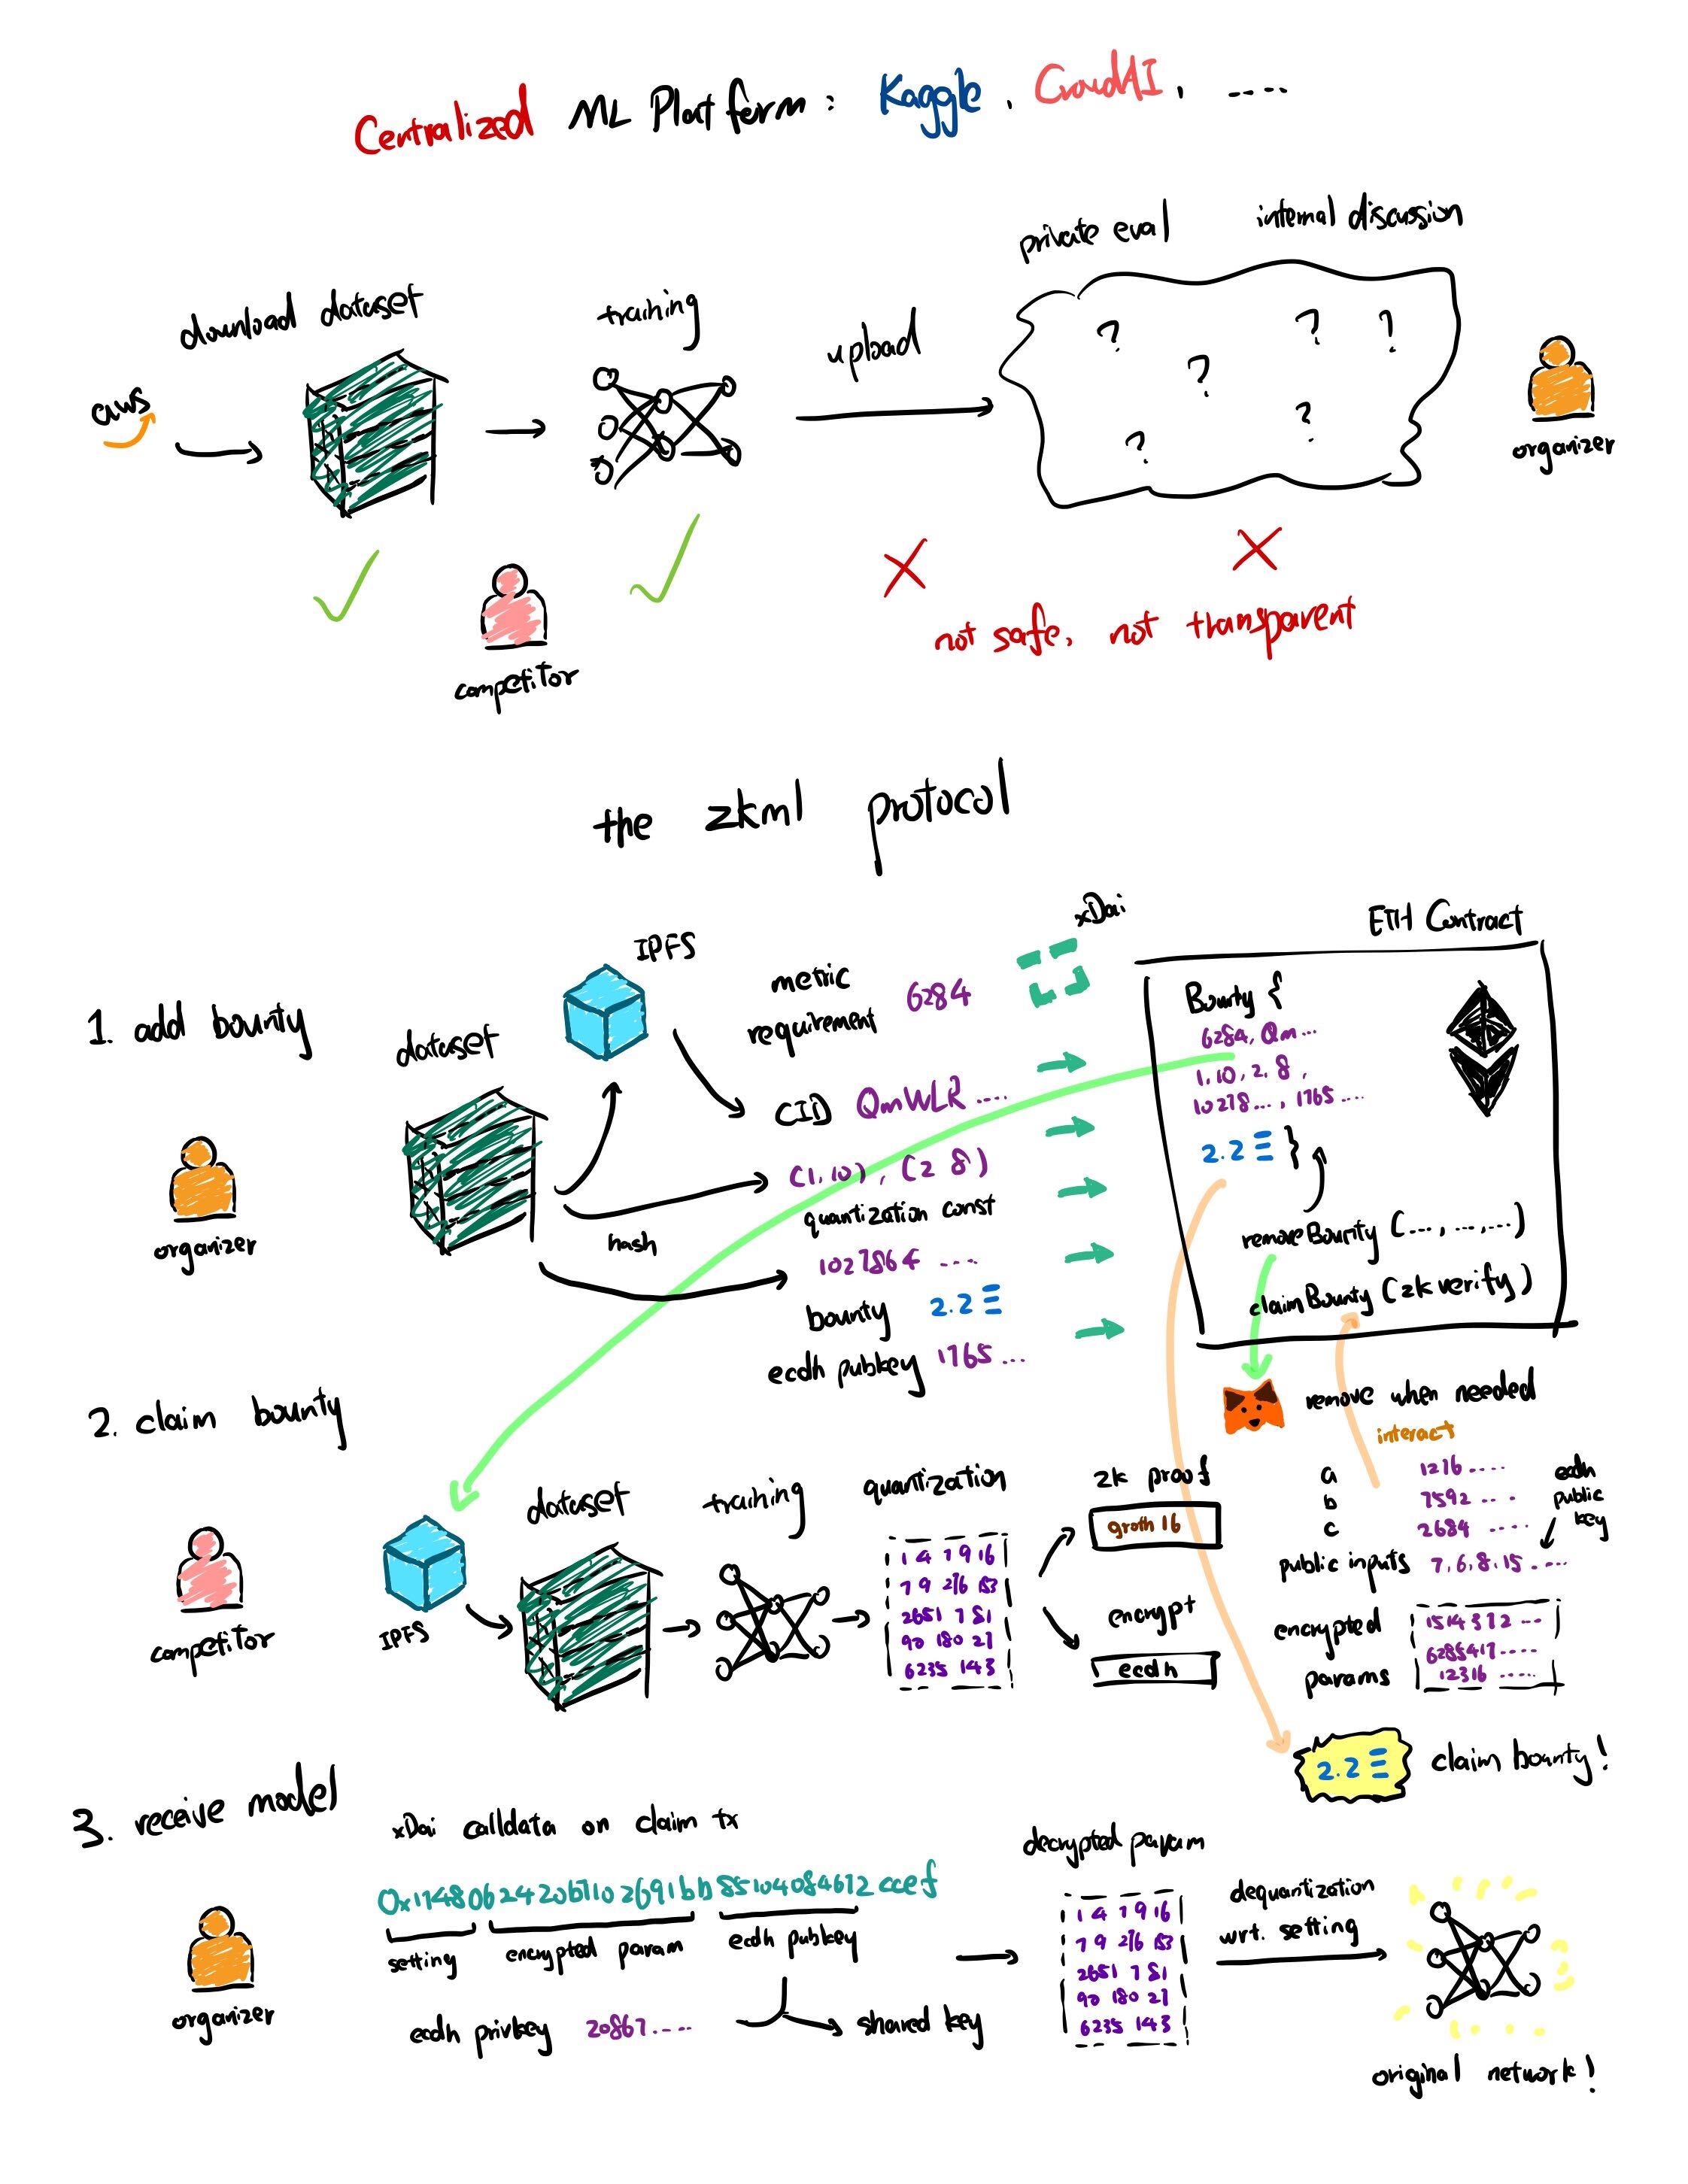 Centralized ML Platform : Kaggle, CrowdAI, ....
private eval internal discussion
download dataset
training
upload
aws
? ? ?
?
?
?
organizer
competitor
not safe, not transparent
the zkml protocol
1. add bounty
organizer
dataset
IPFS
hash
metric
requirement 6284
CID QmWLR ....
(1,10), (2 8)
quantization const
1027864 ....
bounty 2.2 Ξ
ecdh pubkey 1765 ...
xDai
ETH Contract
Bounty {
6284, Qm...
1, 10, 2, 8,
10278..., 1765....
2.2 Ξ }
removeBounty (..., ..., ...)
claimBounty (zk verify)
remove when needed
2. claim bounty
competitor
IPFS
dataset
training
quantization
1 4 7 9 16
7 9 276 153
2651 7 81
90 180 27
6235 143
zk proof
groth 16
encrypt
ecdh
interact
a 1216 ....
b 7592 ....
c 2684 ....
public inputs 7, 6, 8, 15, ....
ecdh
public
key
encrypted
params
1514312 ...
6285417 ....
12316 ....
2.2 Ξ claim bounty!
3. receive model
organizer
xDai calldata on claim tx
0x1748062420671102691bb85104084612ccef
setting encrypted param ecdh pubkey
ecdh privkey 20867 ..... shared key
decrypted param
1 4 7 9 16
7 9 276 153
2651 7 81
90 180 27
6235 143
dequantization
wrt. setting
original network!